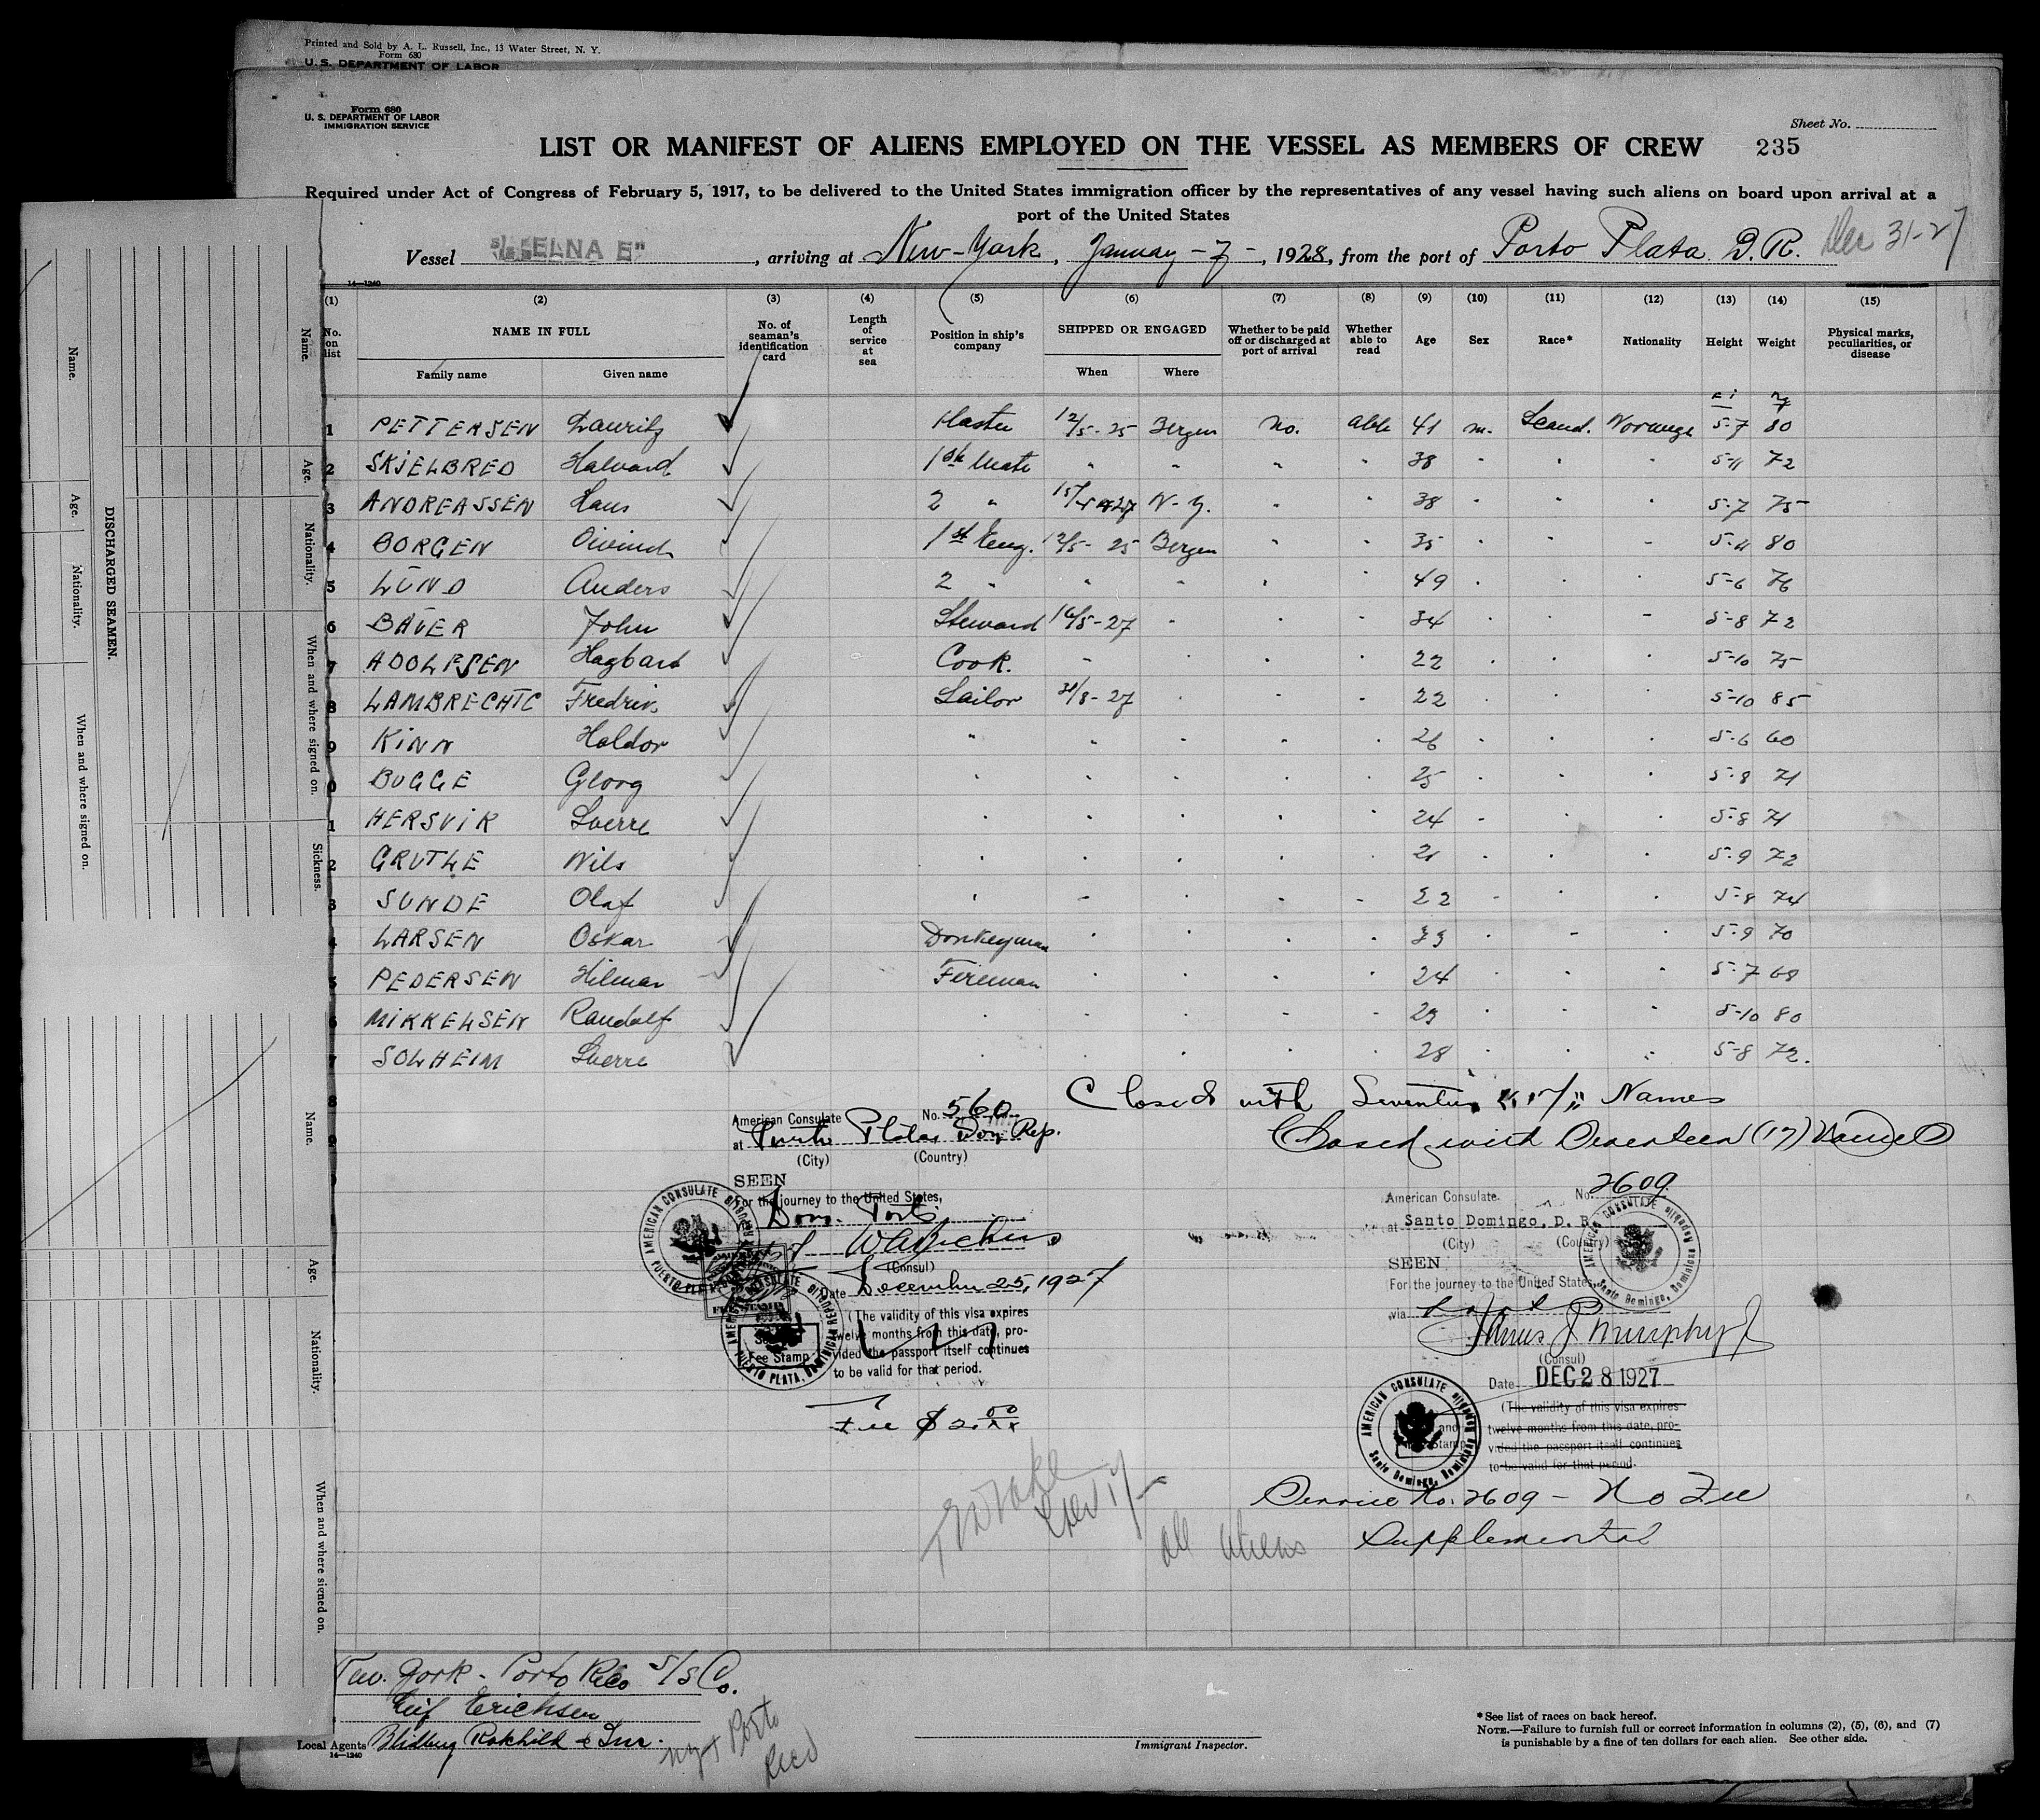 Printed and Sold by A. L. Russell, Inc., 13 Water Street, N. Y.
Form 680
U. S. DEPARTMENT OF LABOR
Form 680
U. S. DEPARTMENT OF LABOR
IMMIGRATION SERVICE
Sheet No.
LIST OR MANIFEST OF ALIENS EMPLOYED ON THE VESSEL AS MEMBERS OF CREW 235
Required under Act of Congress of February 5, 1917, to be delivered to the United States immigration officer by the representatives of any vessel having such aliens on board upon arrival at a
port of the United States
Vessel S/S "ELNA E", arriving at New-York, January - 7 -, 1928, from the port of Porto Plata. D. R. Dec 31-27
14—1240
(1) (2) (3) (4) (5) (6) (7) (8) (9) (10) (11) (12) (13) (14) (15)
No. on list NAME IN FULL No. of seaman's identification card Length of service at sea Position in ship's company SHIPPED OR ENGAGED Whether to be paid off or discharged at port of arrival Whether able to read Age Sex Race* Nationality Height Weight Physical marks, peculiarities, or disease
Family name Given name When Where
1 PETTERSEN Lauritz Master 12/5-25 Bergen No. able 41 m. Scand. Norwege 5-7 80
2 SKJELBRED Halvard 1st Mate " " " " 38 " " " 5-11 72
3 ANDREASSEN Hans 2 " N-Y. " " 38 " " " 5-7 75
4 BORGEN Oivind 1st Eng. 12/5-25 Bergen " " 35 " " " 5-11 80
5 LUND Anders 2 " " " " " 49 " " " 5-6 76
6 BAUER John Steward 16/5-27 " " " 34 " " " 5-8 72
7 ADOLFSEN Hagbart Cook. " " " " 22 " " " 5-10 75
8 LAMBRECHTC Fredrik Sailor 31/8-27 " " " 22 " " " 5-10 85
9 KINN Haldor " " " " " 26 " " " 5-6 60
0 BUGGE Georg " " " " " 25 " " " 5-8 71
1 HERSVIK Sverre " " " " " 24 " " " 5-8 71
2 GRUTLE Nils " " " " " 21 " " " 5-9 72
3 SUNDE Olaf " " " " " 22 " " " 5-8 74
4 LARSEN Oskar Donkeyman " " " " 33 " " " 5-9 70
5 PEDERSEN Hilmar Fireman " " " " 24 " " " 5-7 68
6 MIKKELSEN Randolf " " " " " 29 " " " 5-10 80
7 SOLHEIM Sverre " " " " " 28 " " " 5-8 72.
8
Closed with Seventeen "17" Names
Closed with Seventeen (17) Names
American Consulate No. 560
at Puerto Plata, Dom. Rep.
(City) (Country)
SEEN
For the journey to the United States,
Dom. Ports
(Consul)
Date December 25, 1927
(The validity of this visa expires
twelve months from this date, pro-
vided the passport itself continues
to be valid for that period.
AMERICAN CONSULATE
PUERTO PLATA, DOMINICAN REPUBLIC
Fee Stamp
Fee $2.00
American Consulate. No. 2609
at Santo Domingo, D. R.
(City) (Country)
SEEN
For the journey to the United States,
via
James J Murphy Jr
(Consul)
Date DEC 28 1927
(The validity of this visa expires
twelve months from this date, pro-
vided the passport itself continues
to be valid for that period.
AMERICAN CONSULATE
Santo Domingo, Dominican Republic
Service No. 2609 - No Fee
Supplemental
all aliens
New York - Porto Rico S/S Co.
Leif Erichsen
Local Agents
14—1240
NY & Porto Rico
Immigrant Inspector.
*See list of races on back hereof.
NOTE.—Failure to furnish full or correct information in columns (2), (5), (6), and (7)
is punishable by a fine of ten dollars for each alien. See other side.
DISCHARGED SEAMEN.
Name.
Age.
Nationality.
When and where signed on.
Name.
Age.
Nationality.
When and where signed on.
Sickness.
Name.
Age.
Nationality.
When and where signed on.